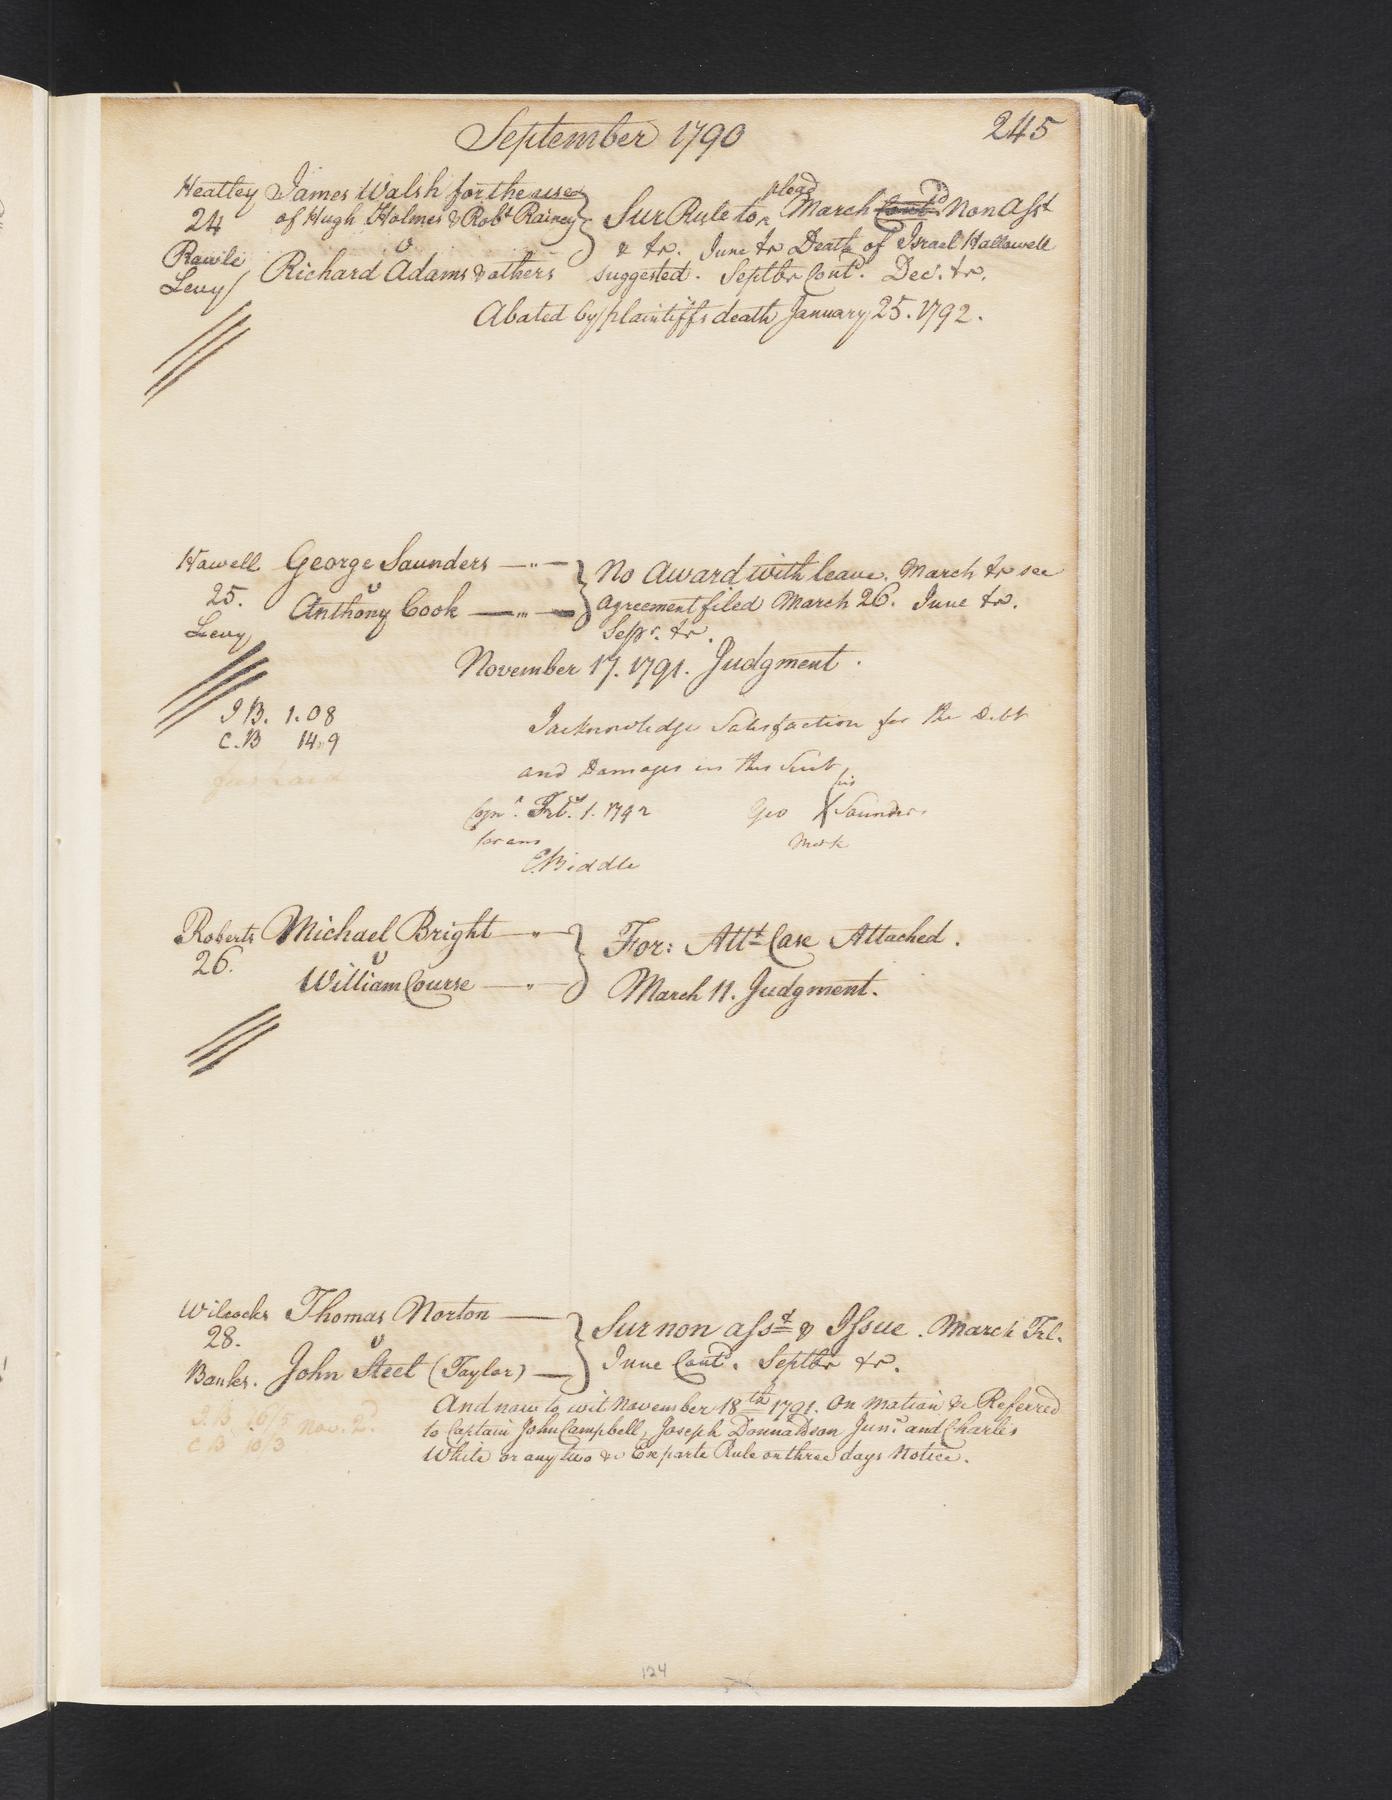 September 1790
245
Heatley James Walsh for the use
24 of Hugh Holmes & Robt Rainey
v
Rawle
Levy Richard Adams & others
Sur Rule to plead March Contd. Non Asst
& &r. June &r Death of Israel Hallowell
suggested. Septbr Contd. Dec. &r.
Abated by plaintiffs death January 25. 1792.
Howell George Saunders
25. v
Levy Anthony Cook
No Award with leave. March &r see
agreement filed March 26. June &r.
Sepr. &r.
November 17. 1791. Judgment.
J B. 1.08
C.B 14.9
I acknowledge Satisfaction for the Debt
and Damages in this Suit
his
Feby. 1. 1792 Geo X Saunders
coram mark
C Biddle
Roberts Michael Bright
26. v
William Course
For: Attt Case Attached.
March 11. Judgment.
Wilcocks Thomas Norton
28. v
Banks. John Steel (Taylor)
Sur non asst & Issue. March Trl.
June Contd. Septbr &r.
And now to wit November 18th 1791. On motion &c Referred
to Captain John Campbell, Joseph Donnaldson Junr. and Charles
White or any two &c Exparte Rule on three days Notice.
J.B 16/5 Nov. 2d.
C B 10/3
124